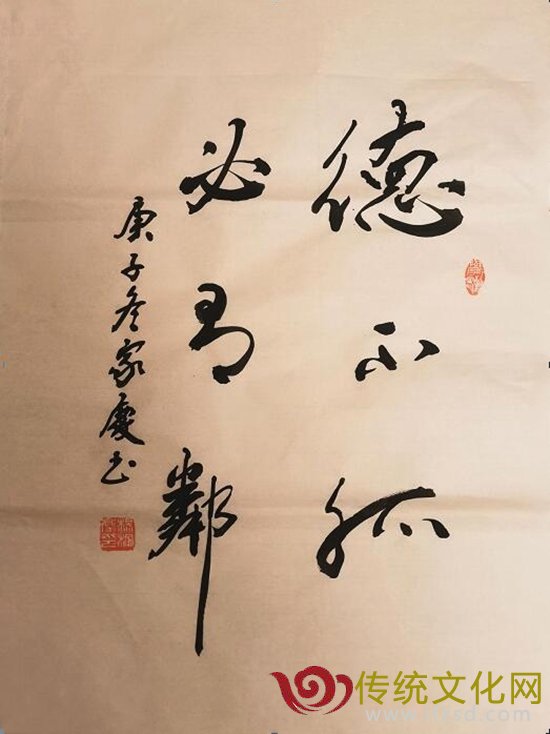 德不孤
必有鄰
庚子冬家慶书
传统文化网